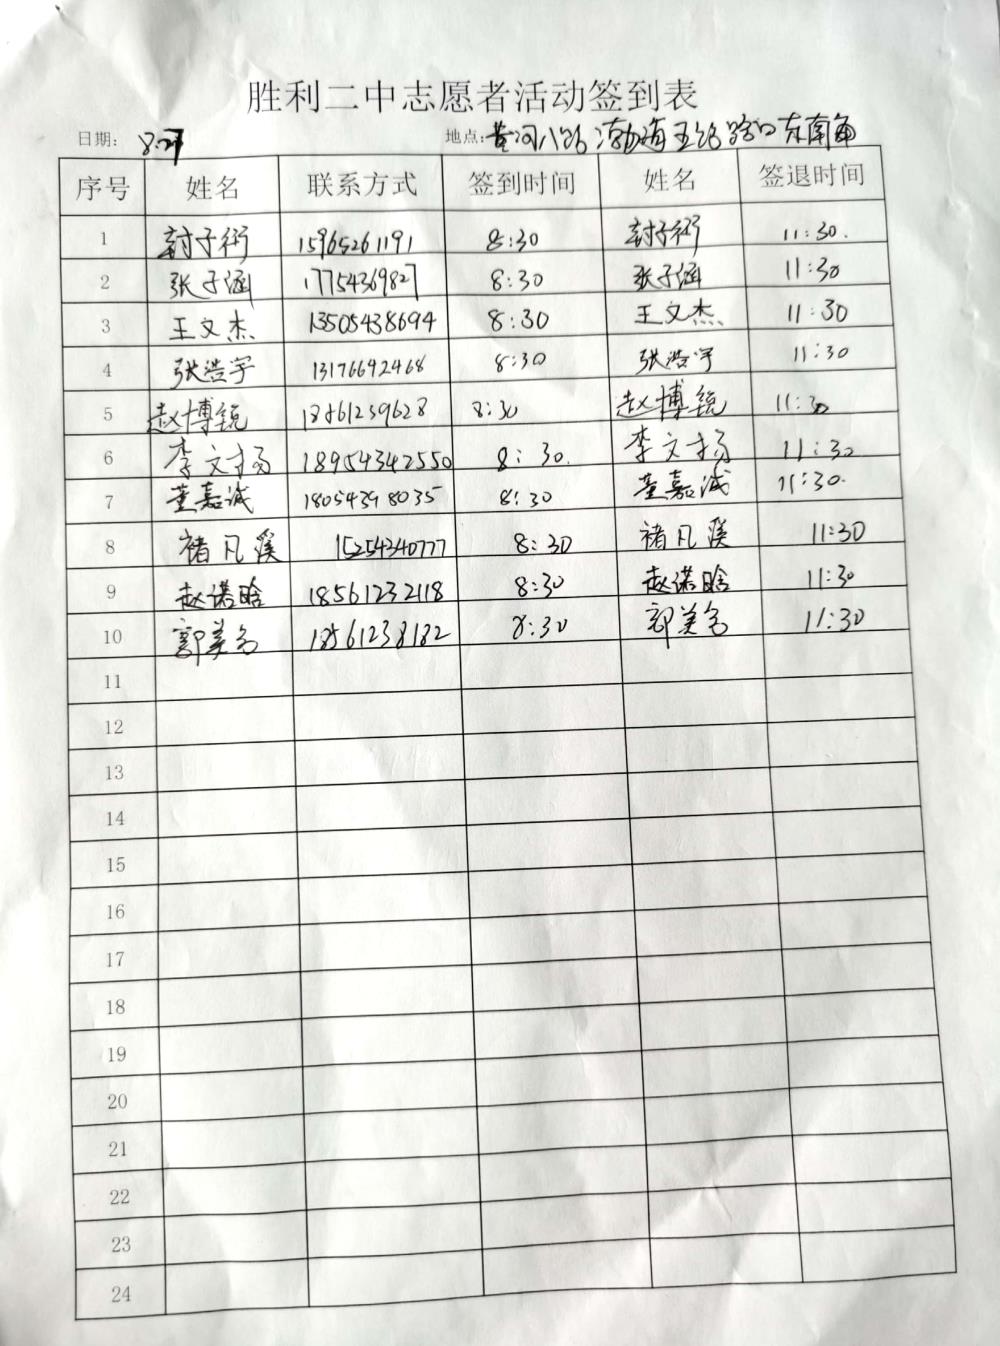 胜利二中志愿者活动签到表
日期： 8.27 地点：黄河八路渤海五路路口东南角
序号 姓名 联系方式 签到时间 姓名 签退时间
1 封子衔 15965261191 8:30 封子衔 11:30.
2 张子涵 17754369827 8:30 张子涵 11:30
3 王文杰 13505438694 8:30 王文杰 11:30
4 张浩宇 13176692468 8:30 张浩宇 11:30
5 赵博锐 18561259628 8:30 赵博锐 11:30
6 李文扬 18954342550 8:30. 李文扬 11:30
7 董嘉诚 18054398035 8:30 董嘉诚 11:30.
8 褚凡溪 15254340777 8:30 褚凡溪 11:30
9 赵诺晗 18561232118 8:30 赵诺晗 11:30
10 郭美名 18561238182 8:30 郭美名 11:30
11
12
13
14
15
16
17
18
19
20
21
22
23
24